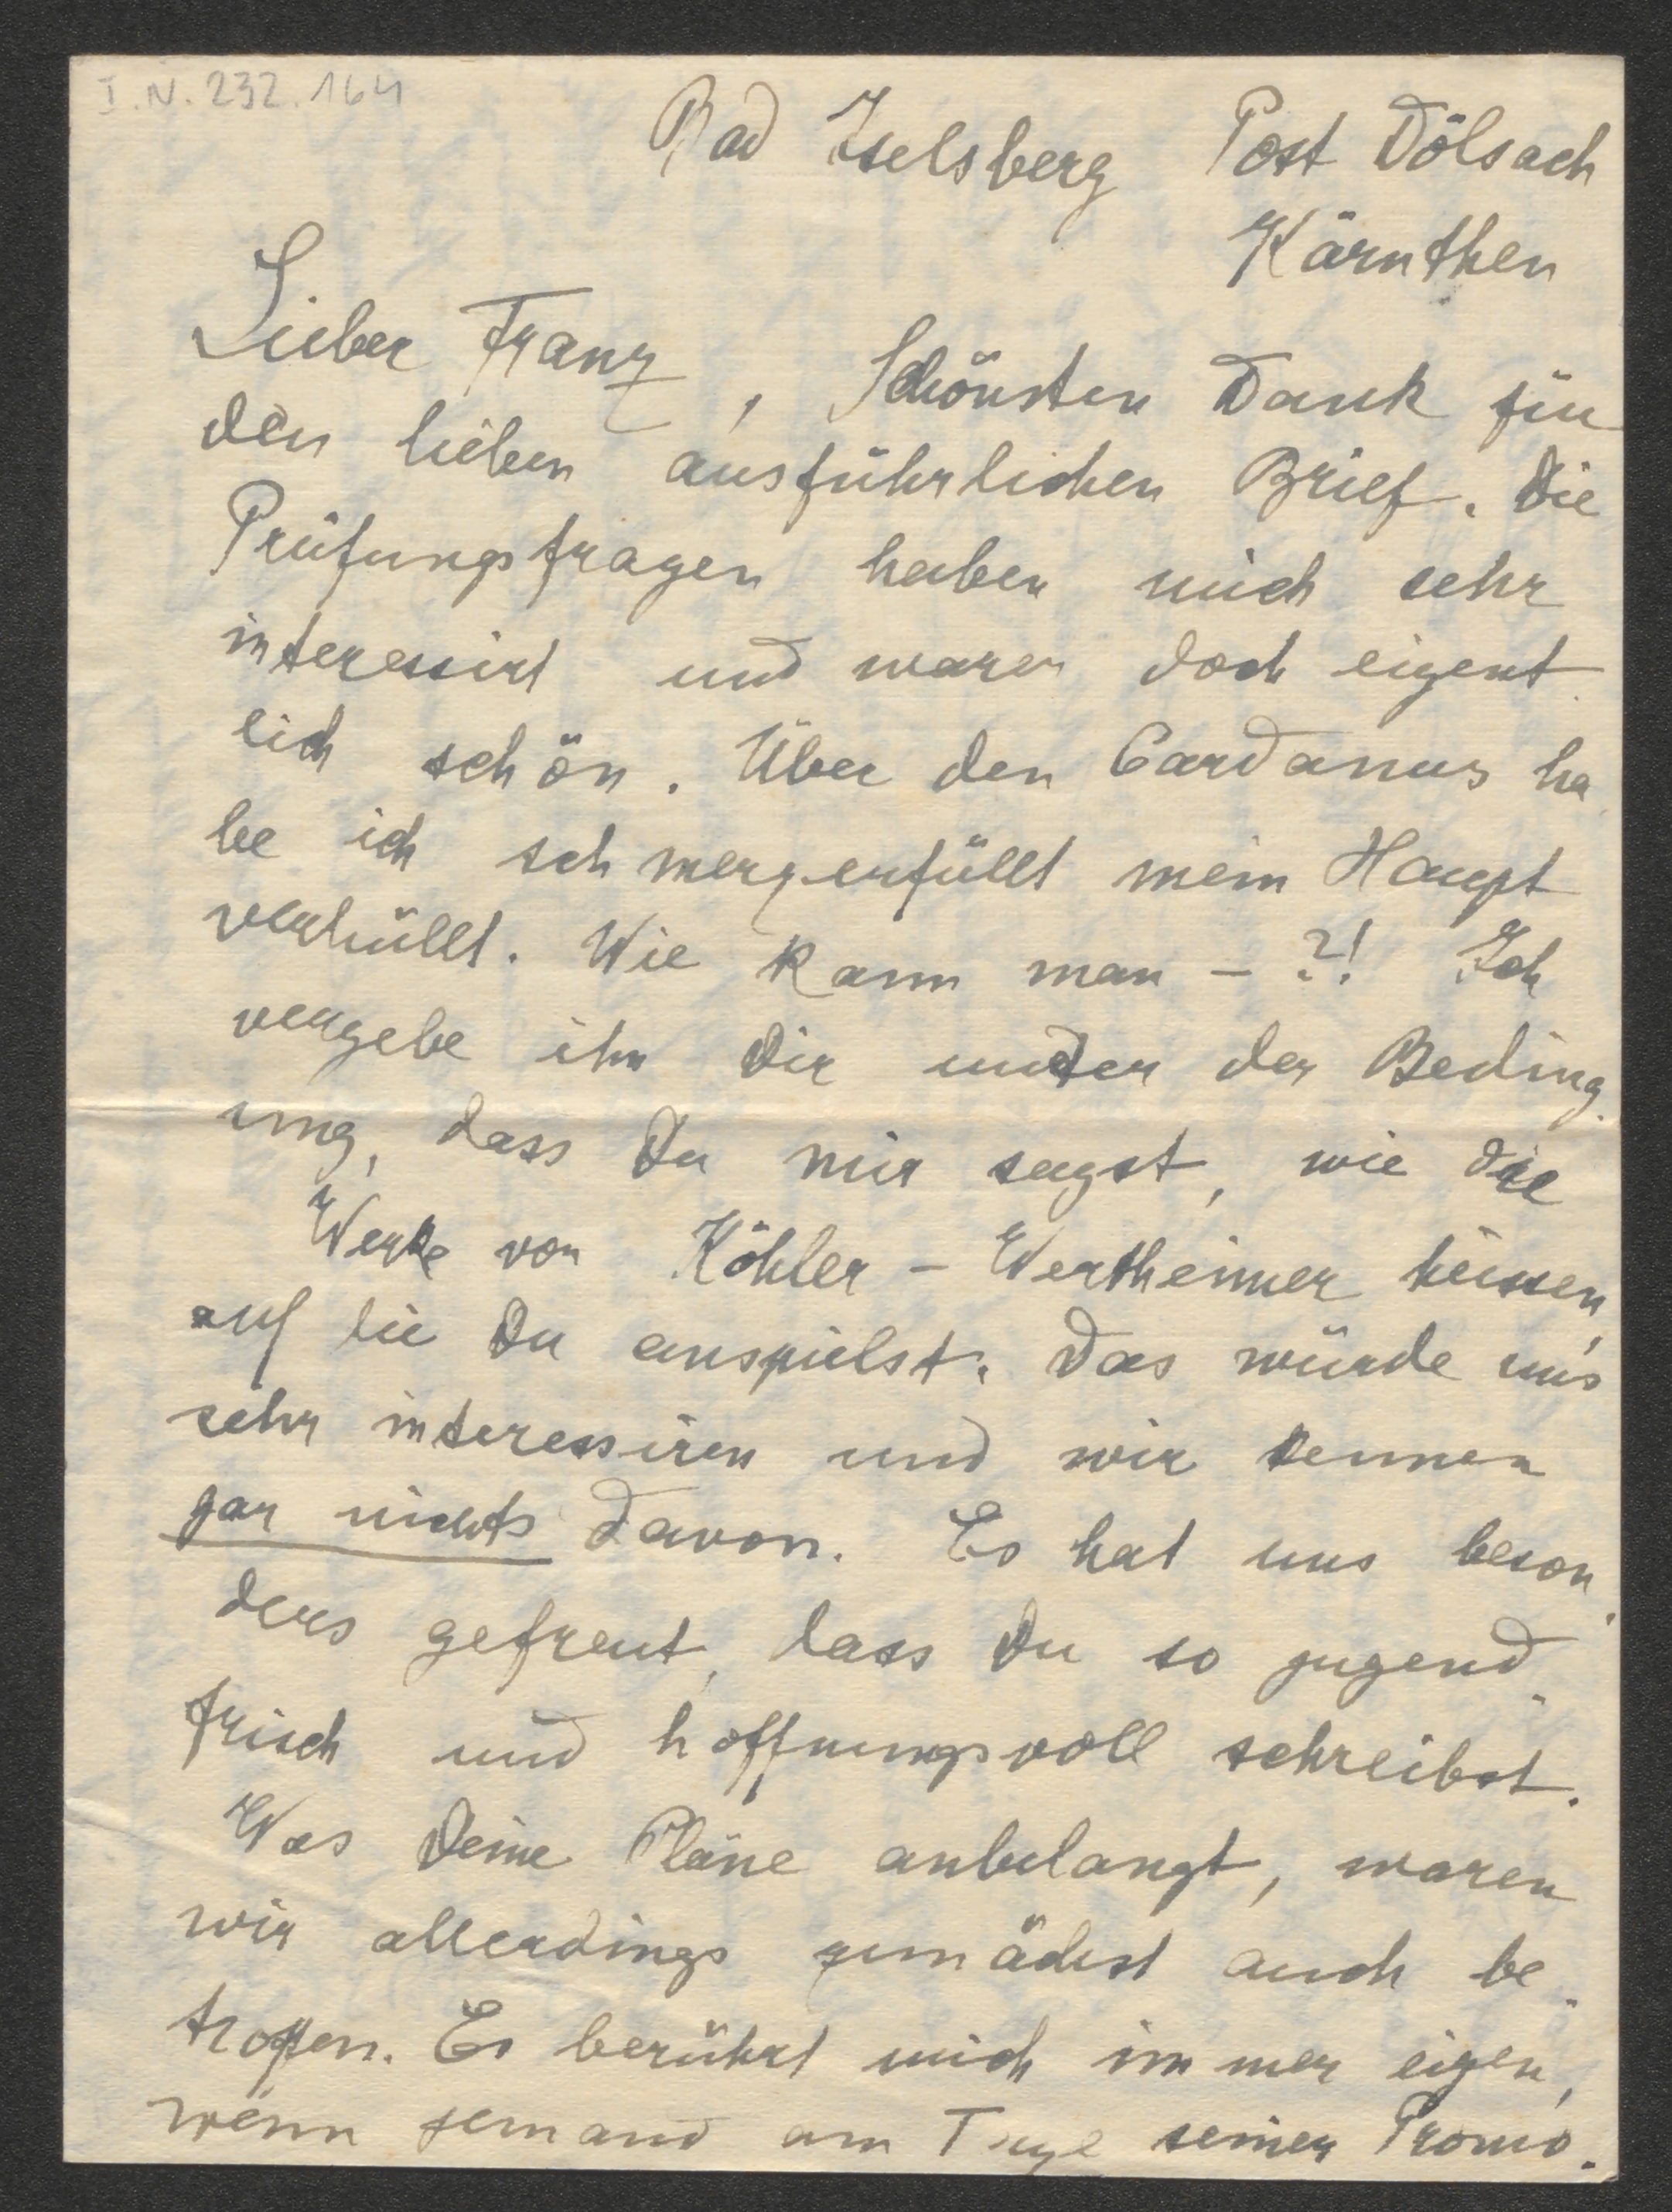 I.N. 232.164
Bad Iselsberg Post Dölsach
Kärnthen
Lieber Franz, Schönsten Dank für
den lieben ausführlichen Brief. Die
Prüfungsfragen haben mich sehr
interessirt und waren doch eigent-
lich schön. Über den Cardanus ha-
be ich schmerzerfüllt mein Haupt
verhüllt. Wie kann man - ?! Ich
vergebe ihn Dir unter der Beding-
ung, dass Du mir sagst, wie die
Werke von Köhler - Wertheimer heissen,
auf die Du anspielst. Das würde uns
sehr interessiren und wir kennen
gar nichts davon. Es hat uns beson-
ders gefreut, dass Du so jugend-
frisch und hoffnungsvoll schreibst.
Was Deine Pläne anbelangt, waren
wir allerdings zunächst auch be-
troffen. Es berührt mich immer eigen,
wenn jemand am Tage seiner Promo-